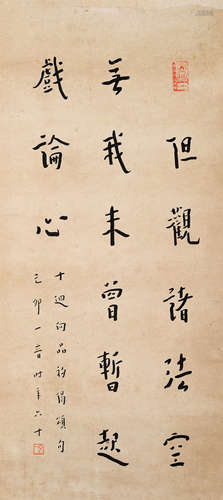 但觀諸法空
無我未曾暫起
戲論心
十迴向品初偈頌句
己卯一音時年六十